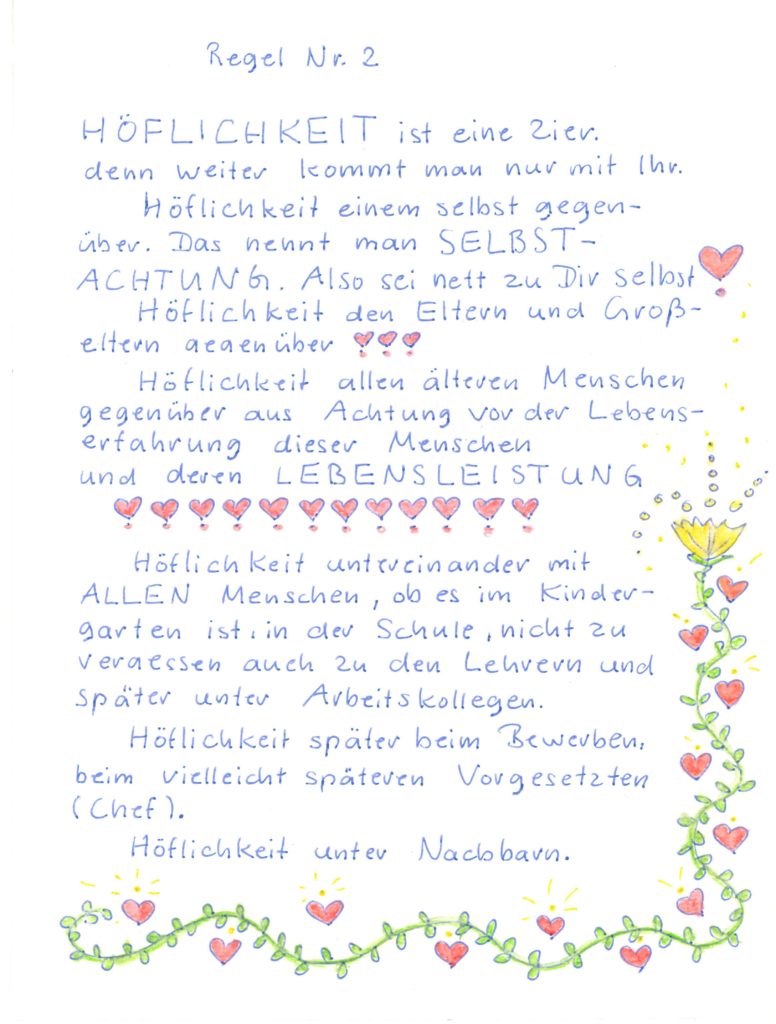 Regel Nr. 2
HÖFLICHKEIT ist eine Zier.
denn weiter kommt man nur mit Ihr.
Höflichkeit einem selbst gegen-
über. Das nennt man SELBST-
ACHTUNG. Also sei nett zu Dir selbst
Höflichkeit den Eltern und Groß-
eltern gegenüber
Höflichkeit allen älteren Menschen
gegenüber aus Achtung vor der Lebens-
erfahrung dieser Menschen
und deren LEBENSLEISTUNG
Höflichkeit untereinander mit
ALLEN Menschen, ob es im Kinder-
garten ist, in der Schule, nicht zu
vergessen auch zu den Lehrern und
später unter Arbeitskollegen.
Höflichkeit später beim Bewerben,
beim vielleicht späteren Vorgesetzten
(Chef).
Höflichkeit unter Nachbarn.